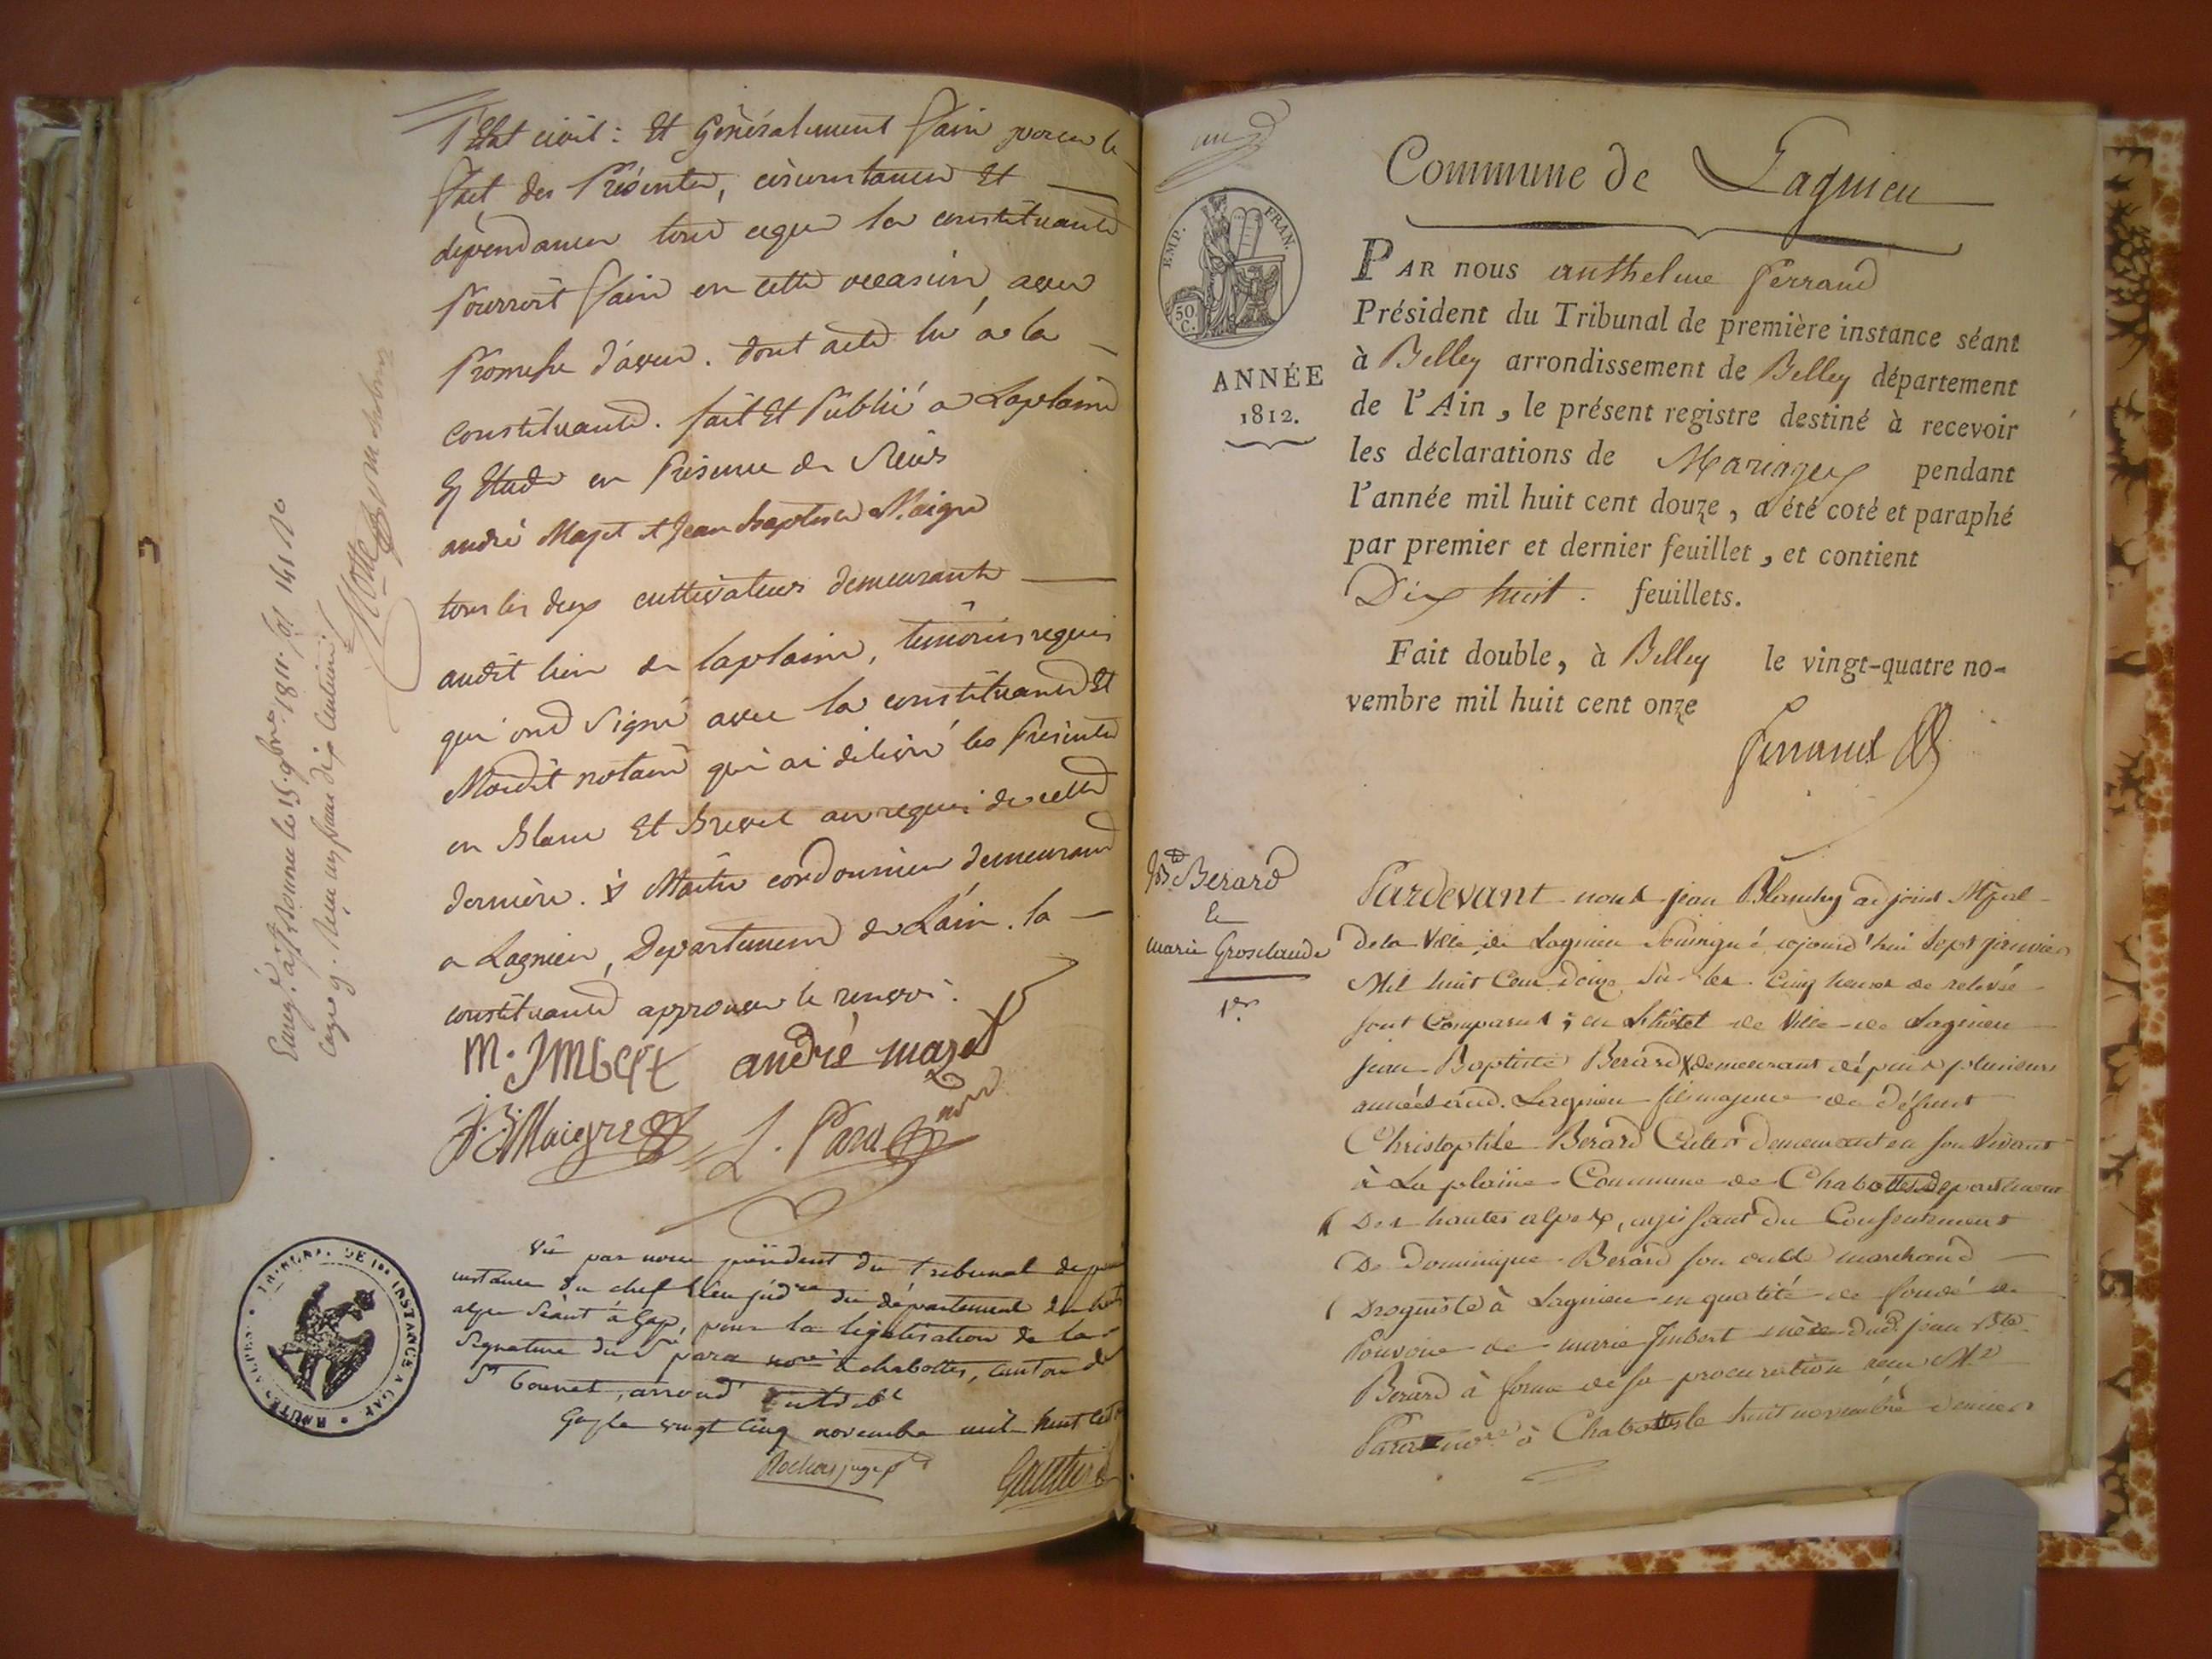 l'Etat civil: Et Généralement faire pour le
fait des Présentes, circonstances Et
dépendances tout ceque la constituante
Pourroit faire en cette occasion, avec
Promesse d'aveu. dont acte lu a la
constituante. fait Et Publié a Laplaine
Et Etude en Présence de Sieurs
andré Mazet et Jean Baptiste Maigre
tous les deux cultivateurs demeurants
audit lieu de laplaine, témoins requis
qui ont signé avec la constituante Et
Moidit notaire qui ai délivré les Présentes
en Blanc Et Brevet au requis de cette
dernière. Maitre cordonnier demeurant
a Lagnieu, Departement de Lain. la
constituante approuve le renvoi.
M. IMbert andré mazet
J. B. Maigre L. Para nore
Vû par nous président du tribunal de
instance du chef lieu judre du département des
alpes séant à Gap, pour la légalisation de la
signature du Sr para nore à chabottes, canton de
St Bonnet, arrond
Gap le vingt cinq novembre mil huit cent
Rochas juge pt Gautier
TRIBUNAL DE 1re INSTANCE A GAP HAUTES ALPES
Enreg. à St Bonnet le 15 9bre 1811. fo 141 Ro
Case 9. Reçu un franc dix Centimes
EMP. FRAN.
50 C.
ANNÉE
1812.
Commune de Lagnieu
PAR nous anthelme ferrand
Président du Tribunal de première instance séant
à Belley arrondissement de Belley département
de l'Ain, le présent registre destiné à recevoir
les déclarations de Mariages pendant
l'année mil huit cent douze, a été coté et paraphé
par premier et dernier feuillet, et contient
Dix huit. feuillets.
Fait double, à Belley le vingt-quatre no-
vembre mil huit cent onze
ferrand
Jn Bte Berard
Et
marie Grosclaude
1er
Pardevant nous jean Blanchy adjoint Mpal
de la Ville de Lagnieu Soussigné cejourd'hui sept janvier
Mil huit Cent Douze Sur les Cinq heures de relevée
sont Comparus; en L'hotel de Ville de Lagnieu
jean Baptiste Berard demeurant dépuis plusieurs
années aud. Lagnieu fils majeur de défunt
Christophle Berard Cultr demeurant en son Vivant
à La plaine Commune de Chabottes département
Des hautes alpes, agissant du Consentement
De Dominique Berard son oncle marchand
Droguiste à Lagnieu en qualité de fondé de
Pouvoir de marie Imbert mère dud. jean Bte
Berard à forme de sa procuration reçu Me
Para nore à Chabottes le huit novembre dernier